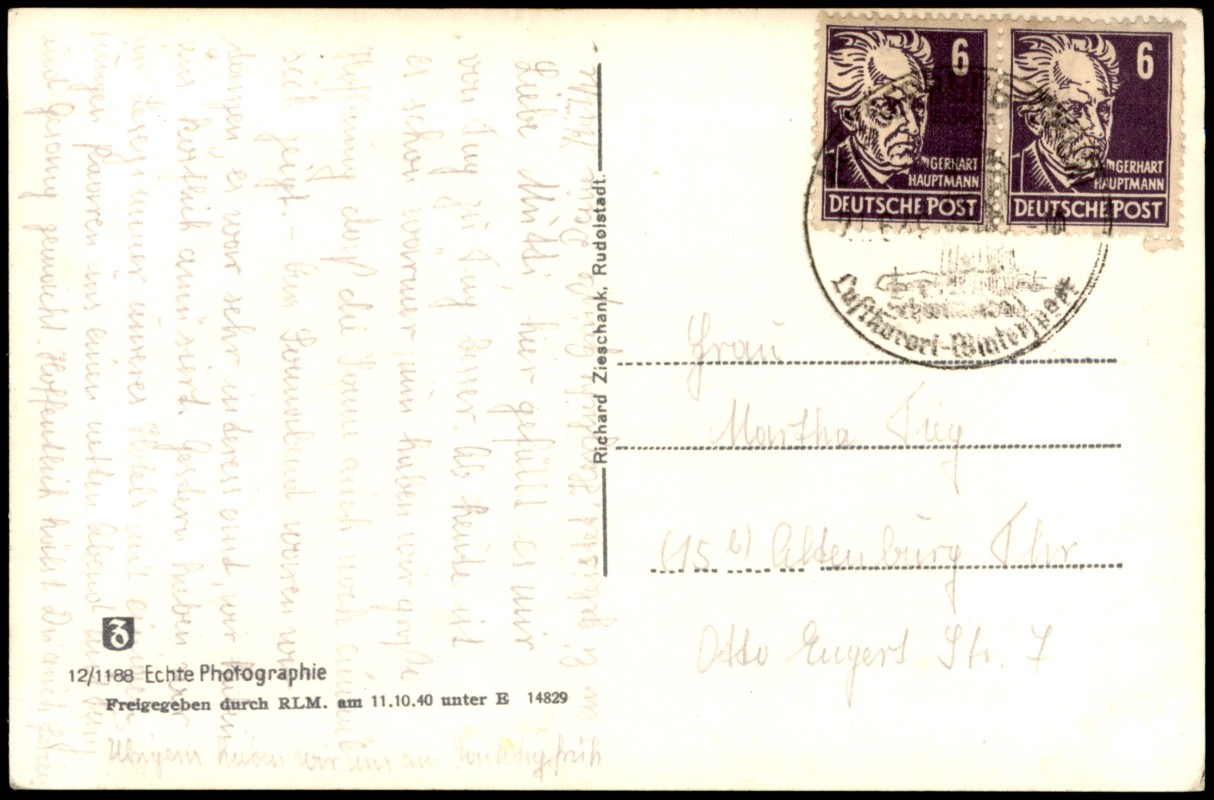 6
GERHART
HAUPTMANN
DEUTSCHE POST
6
GERHART
HAUPTMANN
DEUTSCHE POST
Luftkurort-Wintersport
Liebe Mutti, hier gefällt es mir
von Tag zu Tag besser. Ab heute ist
es schon wärmer, nun haben wir große
Hoffnung, daß die Sonne auch noch einmal
sich zeigt. - Am Sonnabend waren wir
es war sehr interessant, wir haben
uns köstlich amüsiert. Gestern haben wir
im Lesezimmer unseres Hotels mit
jungen Paaren uns einen netten Abend
und Gesang gemacht. Hoffentlich hast Du auch
Übrigens haben wir uns am früh
Richard Zieschank, Rudolstadt.
Frau
Martha
(15 b) Altenburg Thr.
Otto Engert Str. 7
12/1188 Echte Photographie
Freigegeben durch RLM. am 11.10.40 unter E 14829